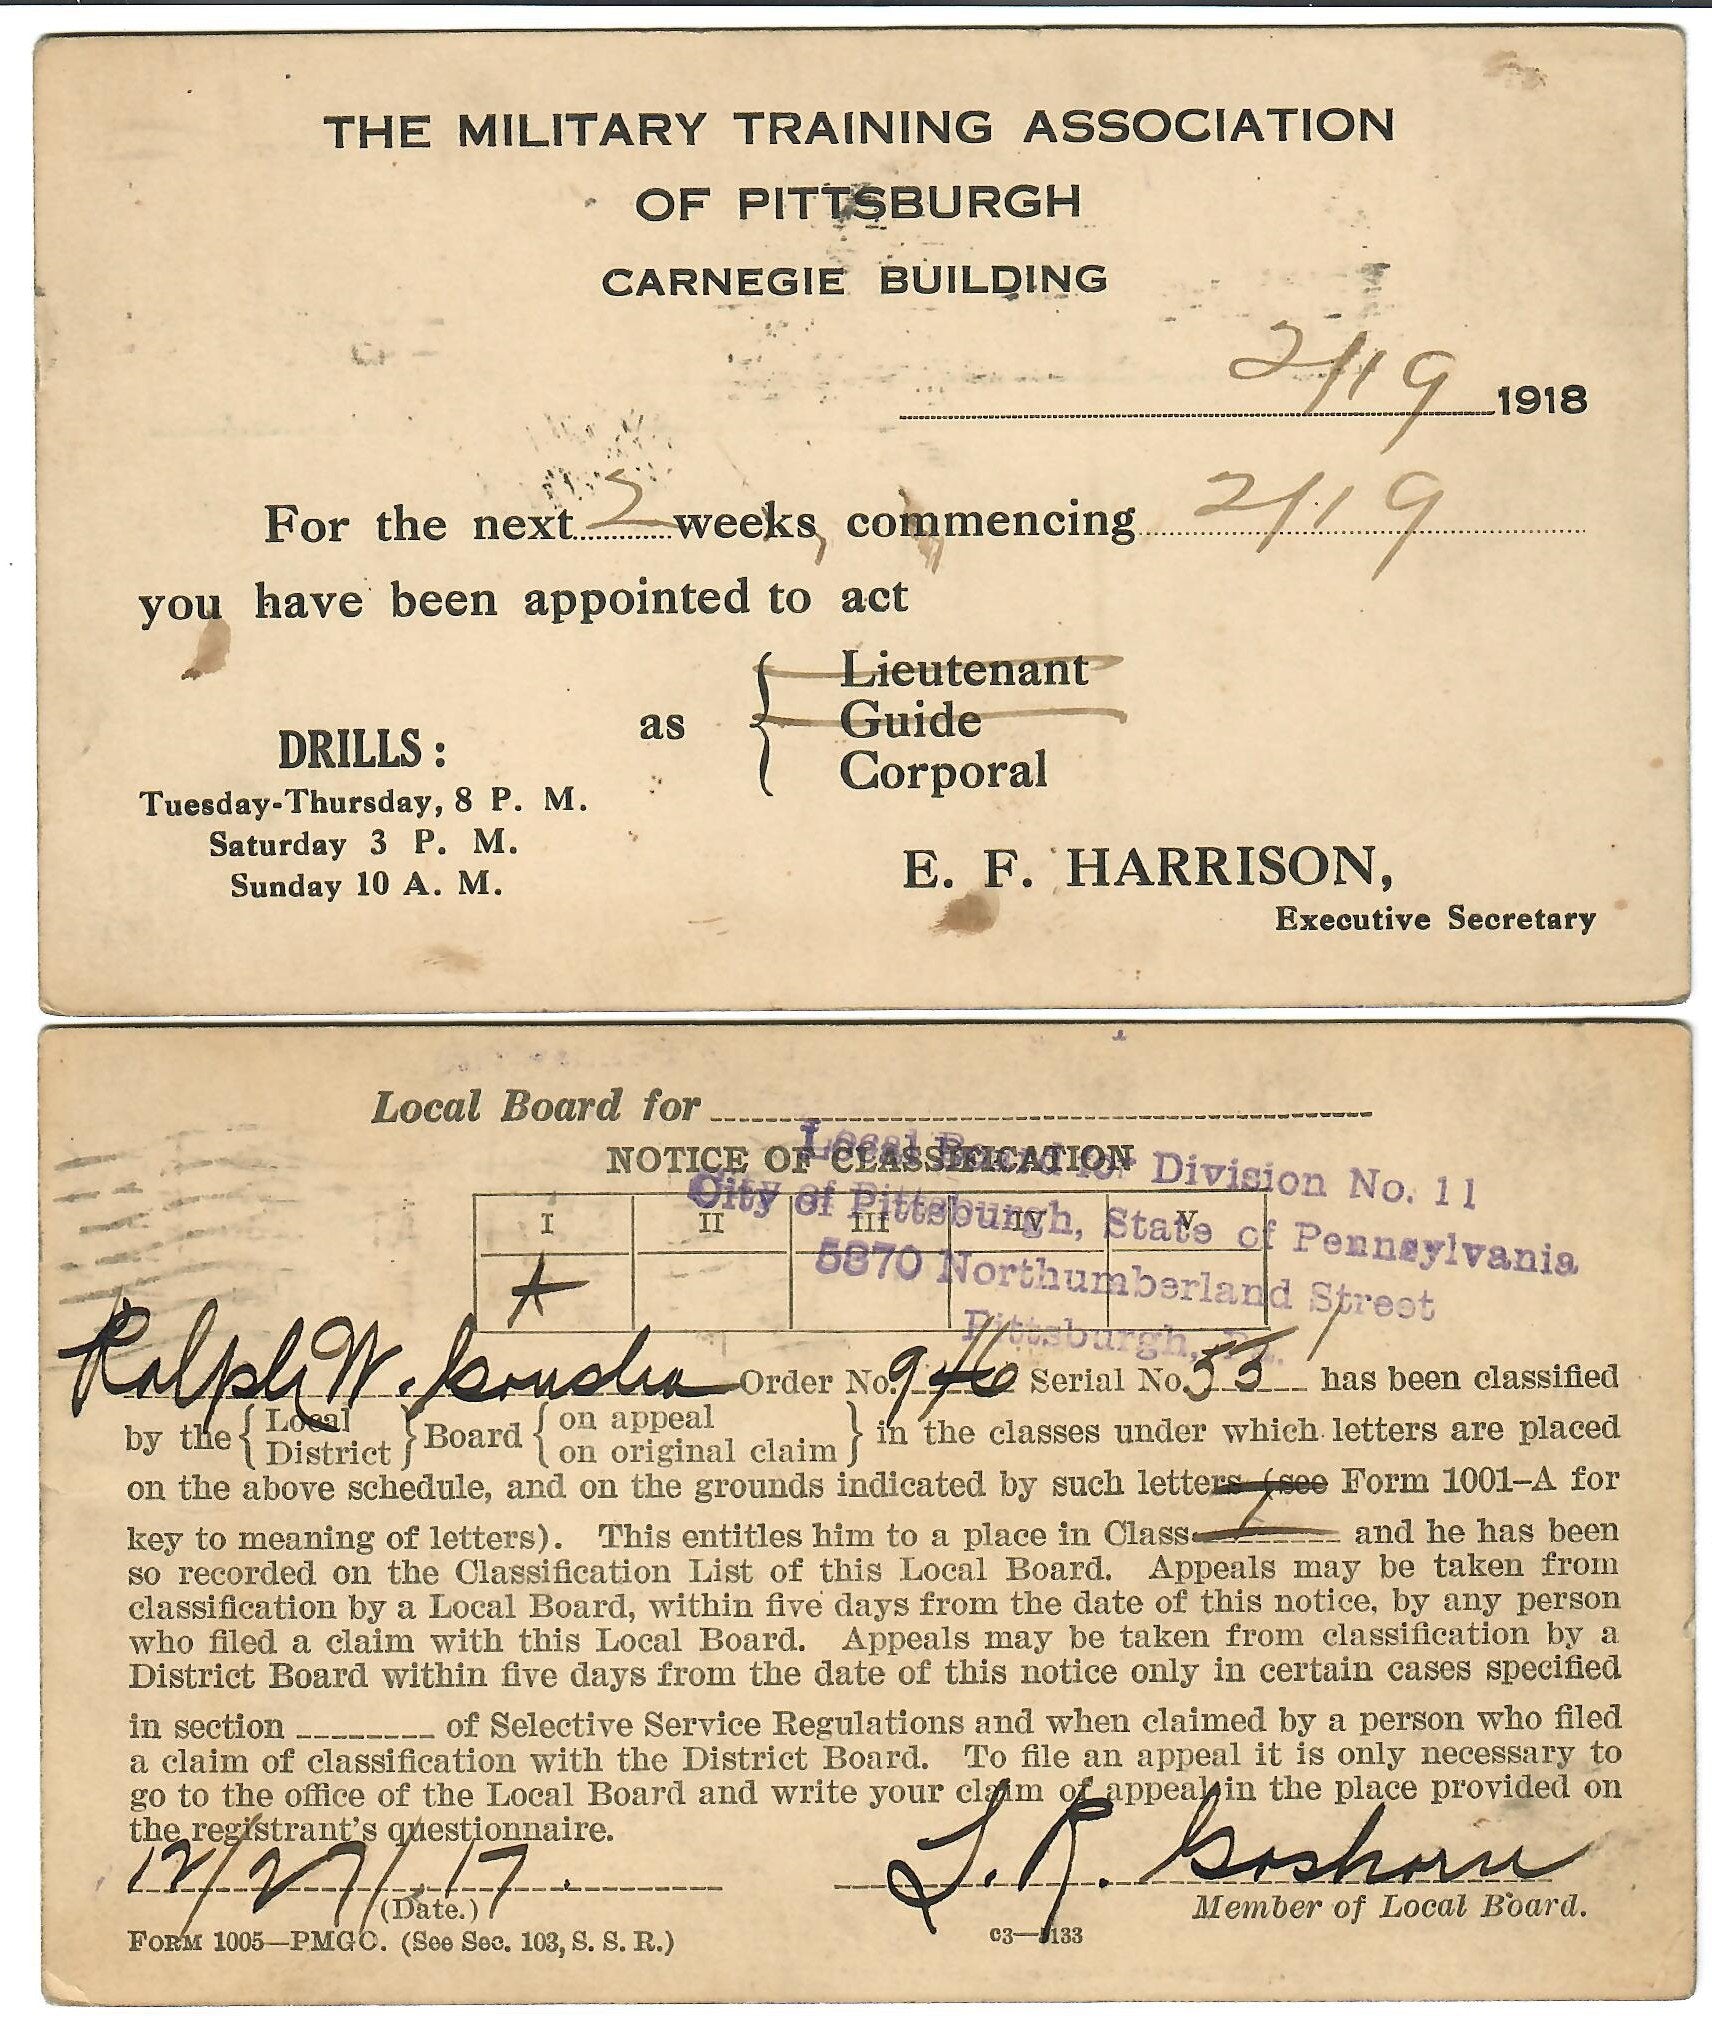 THE MILITARY TRAINING ASSOCIATION
OF PITTSBURGH
CARNEGIE BUILDING
2/19 1918
For the next 2 weeks, commencing 2/19
you have been appointed to act
as { Lieutenant
Guide
Corporal
DRILLS:
Tuesday-Thursday, 8 P. M.
Saturday 3 P. M.
Sunday 10 A. M.
E. F. HARRISON,
Executive Secretary
Local Board for
NOTICE OF CLASSIFICATION
Local Board for Division No. 11
City of Pittsburgh, State of Pennsylvania
5870 Northumberland Street
Pittsburgh, Pa.
I II III IV V
Ralph W. Order No. 946 Serial No. 55 has been classified
by the { Local District } Board { on appeal on original claim } in the classes under which letters are placed
on the above schedule, and on the grounds indicated by such letters (see Form 1001–A for
key to meaning of letters). This entitles him to a place in Class I and he has been
so recorded on the Classification List of this Local Board. Appeals may be taken from
classification by a Local Board, within five days from the date of this notice, by any person
who filed a claim with this Local Board. Appeals may be taken from classification by a
District Board within five days from the date of this notice only in certain cases specified
in section ________ of Selective Service Regulations and when claimed by a person who filed
a claim of classification with the District Board. To file an appeal it is only necessary to
go to the office of the Local Board and write your claim of appeal in the place provided on
the registrant's questionnaire.
12/27/17. Goshorn
(Date.) Member of Local Board.
FORM 1005—PMGO. (See Sec. 103, S. S. R.) c3—5133